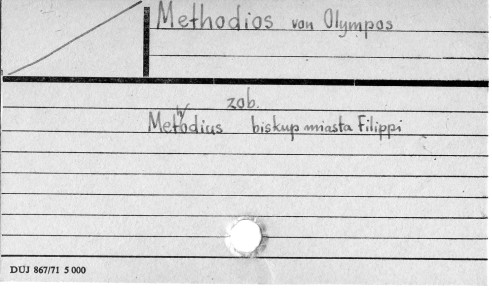 Methodios von Olympos
zob.
Metodius biskup miasta Filippi
DUJ 867/71 5 000